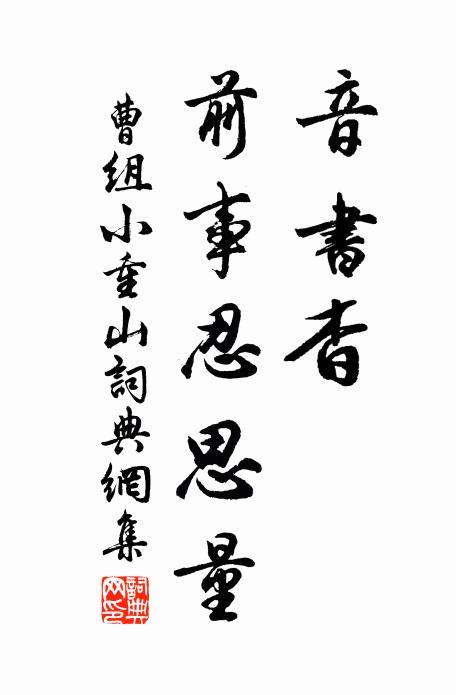 音書杳
前事忍思量
曹組小重山詞典網集
詞典網印